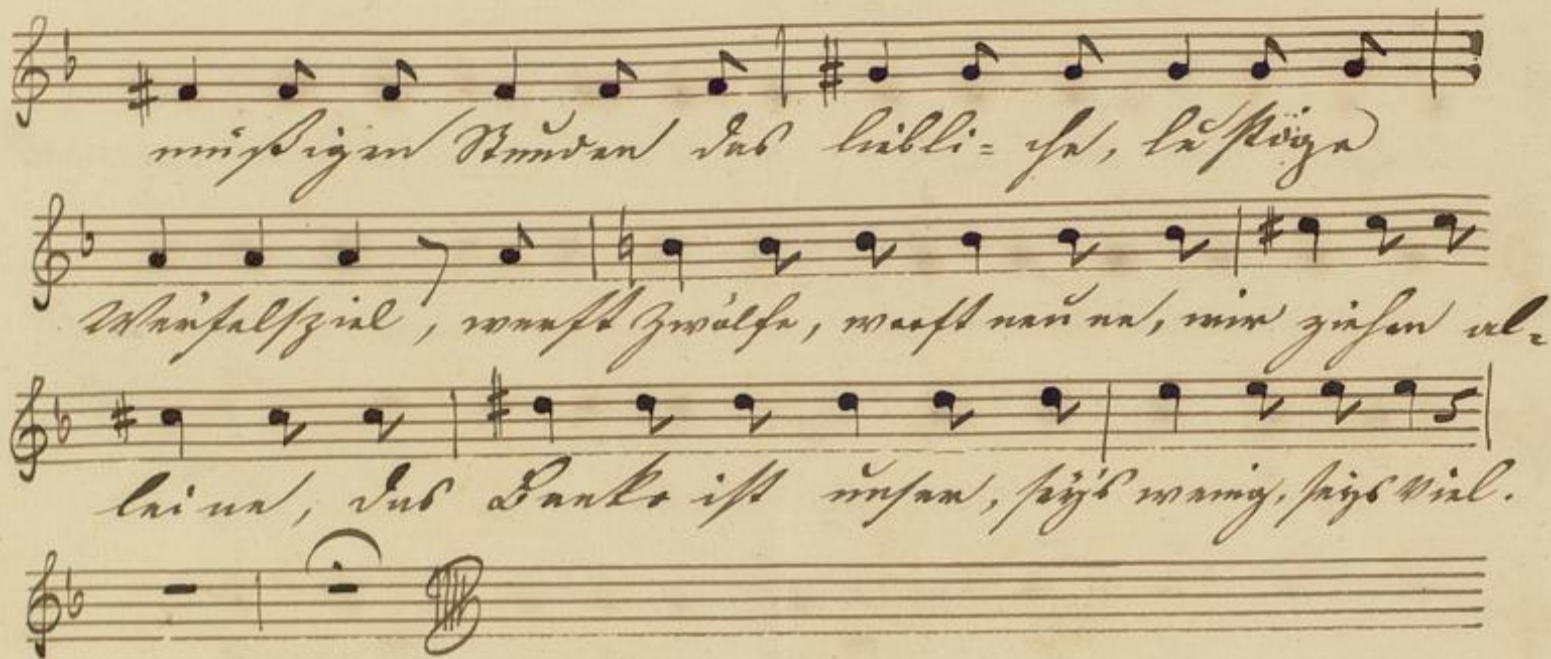 müßigen Stunden das liebli= che, lustige
Würfelspiel, werft Zwölfe, werft neune, wir ziehen al=
leine, das Banko ist unser, sey's wenig, seys viel.